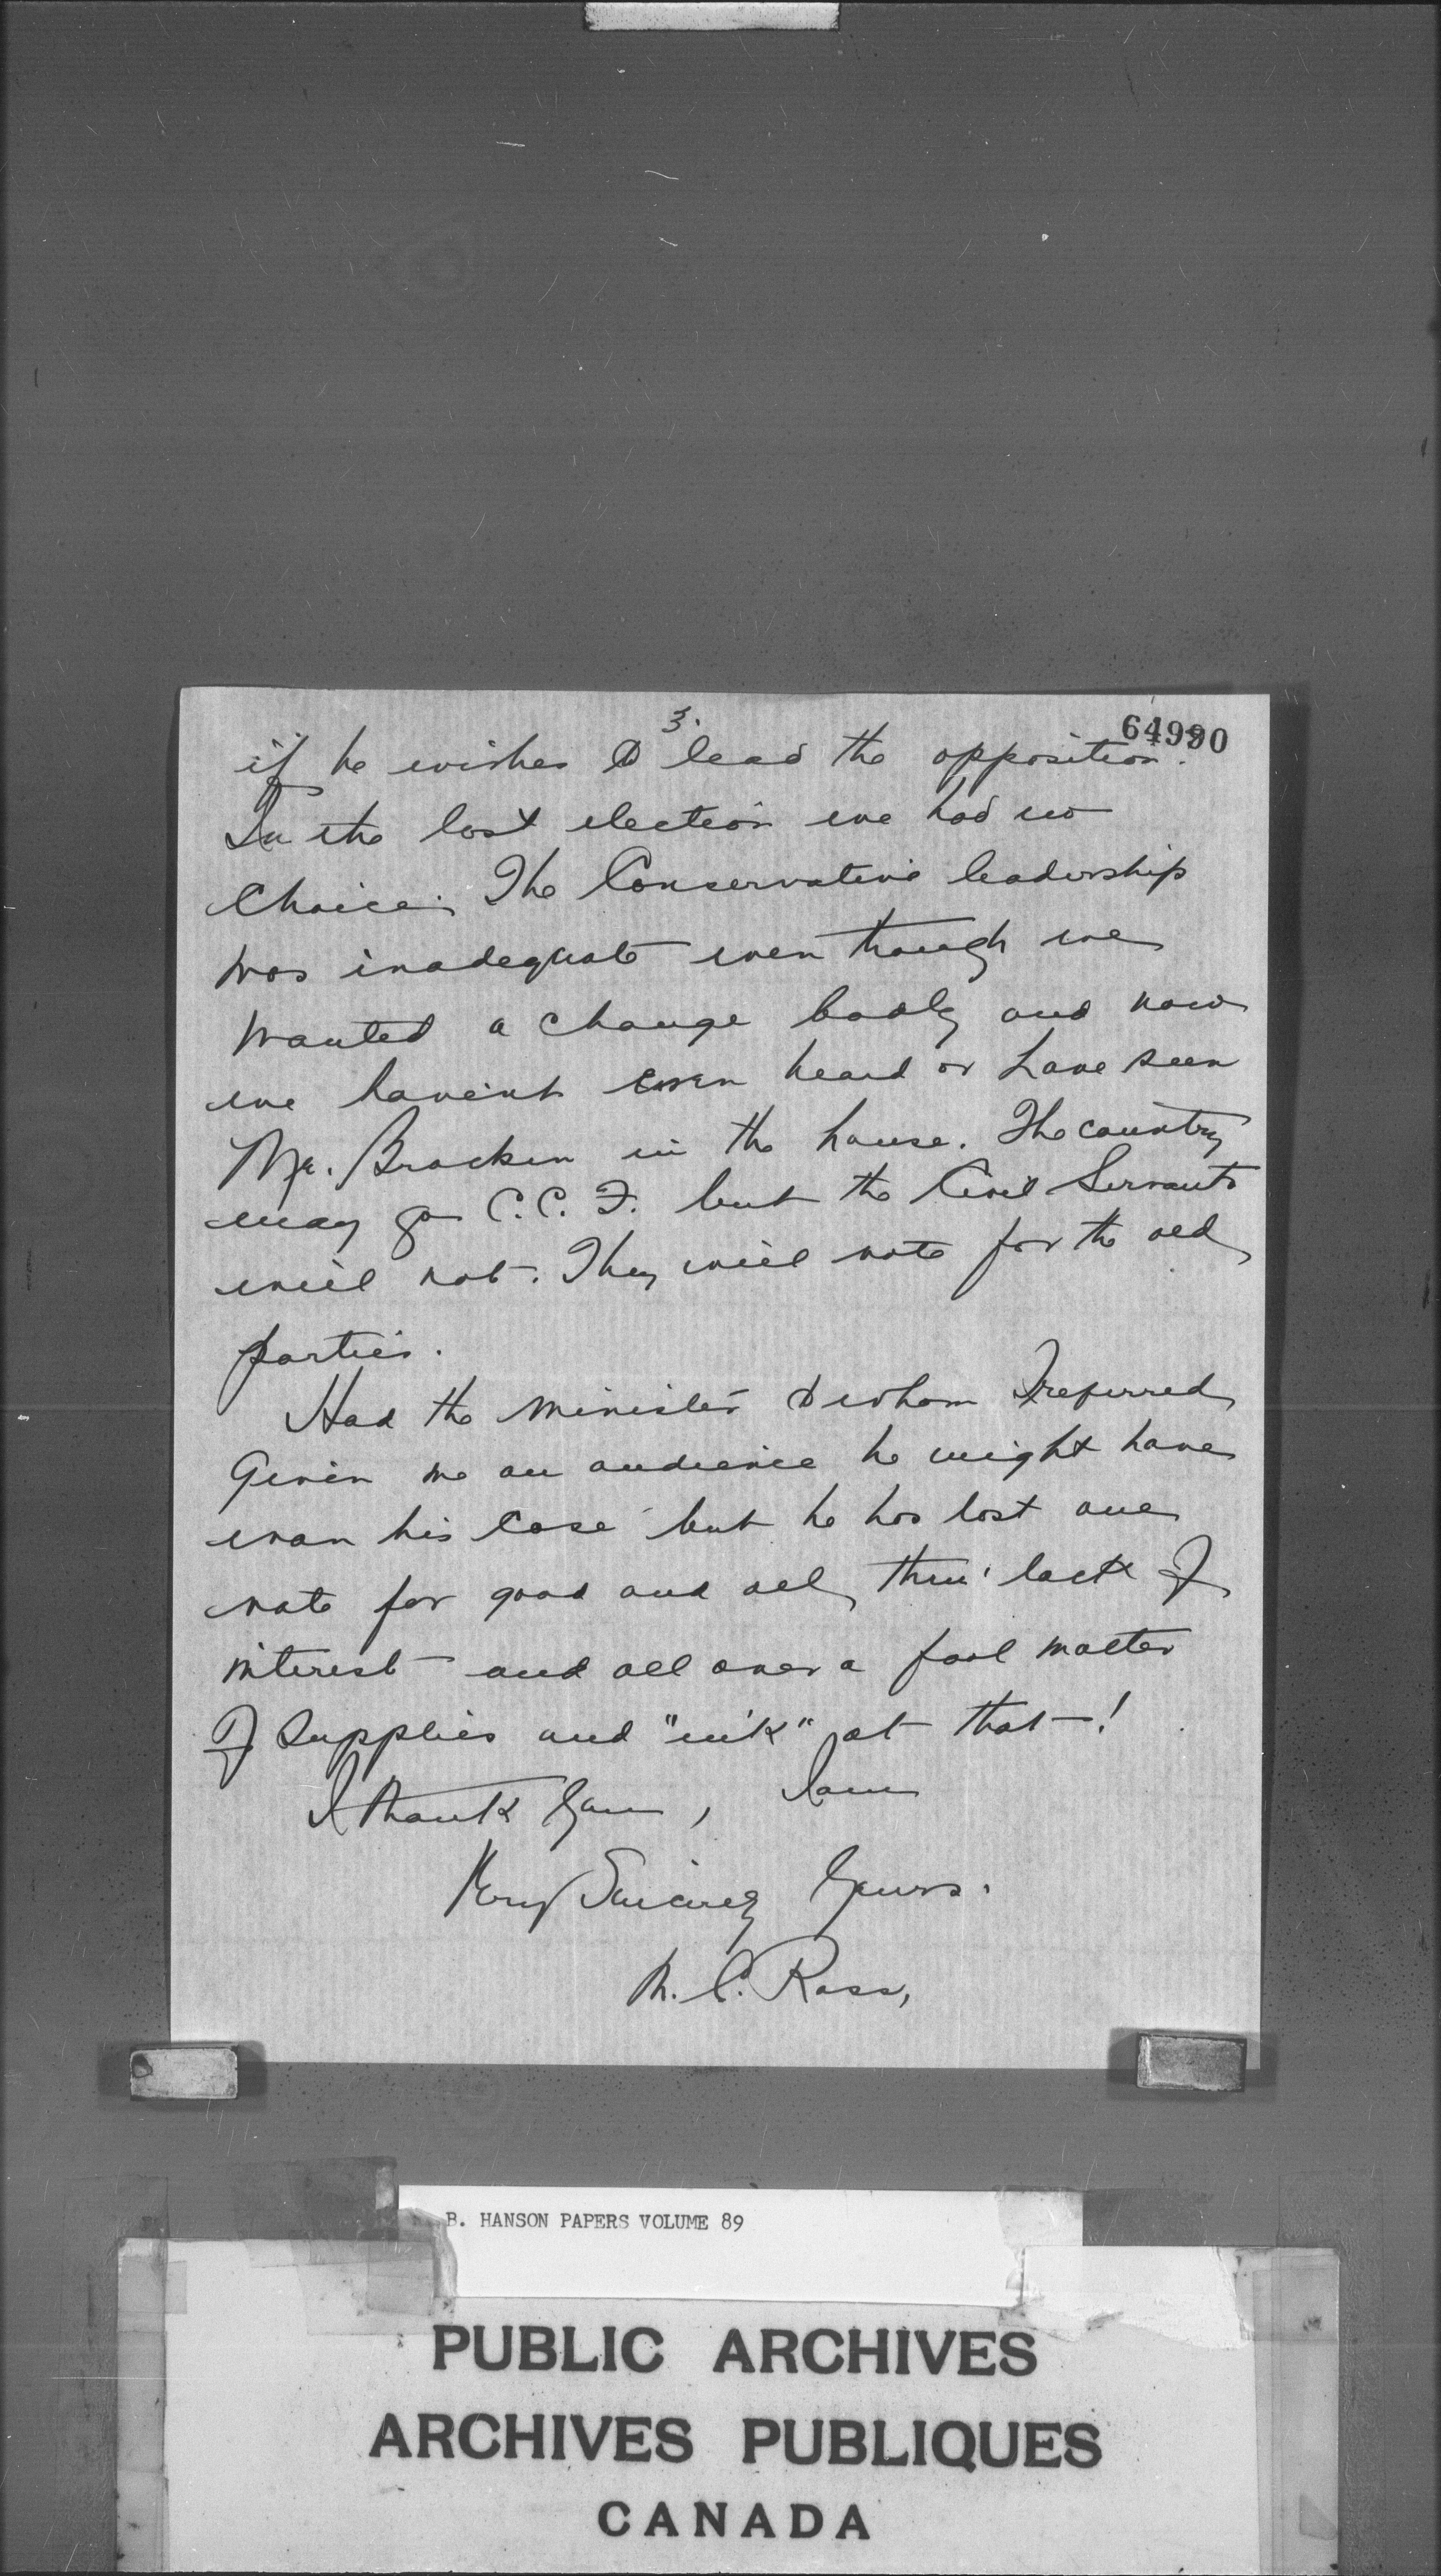 3.
64990
if he wishes to lead the opposition.
In the last election we had no
Choice. The Conservative leadership
was inadequate even though we
wanted a change badly and now
we haven't even heard or have seen
Mr. Bracken in the house. The country
may go C.C.F. but the Civil Servants
will not. They will vote for the old
parties.
Had the minister to whom I referred
Given me an audience he might have
won his case but he has lost one
vote for good and all, thru' lack of
interest - and all over a fool matter
of supplies and "ink" at that - !
I thank you, I am
Very Sincerely Yours.
M. C. Ross,
B. HANSON PAPERS VOLUME 89
PUBLIC ARCHIVES
ARCHIVES PUBLIQUES
CANADA